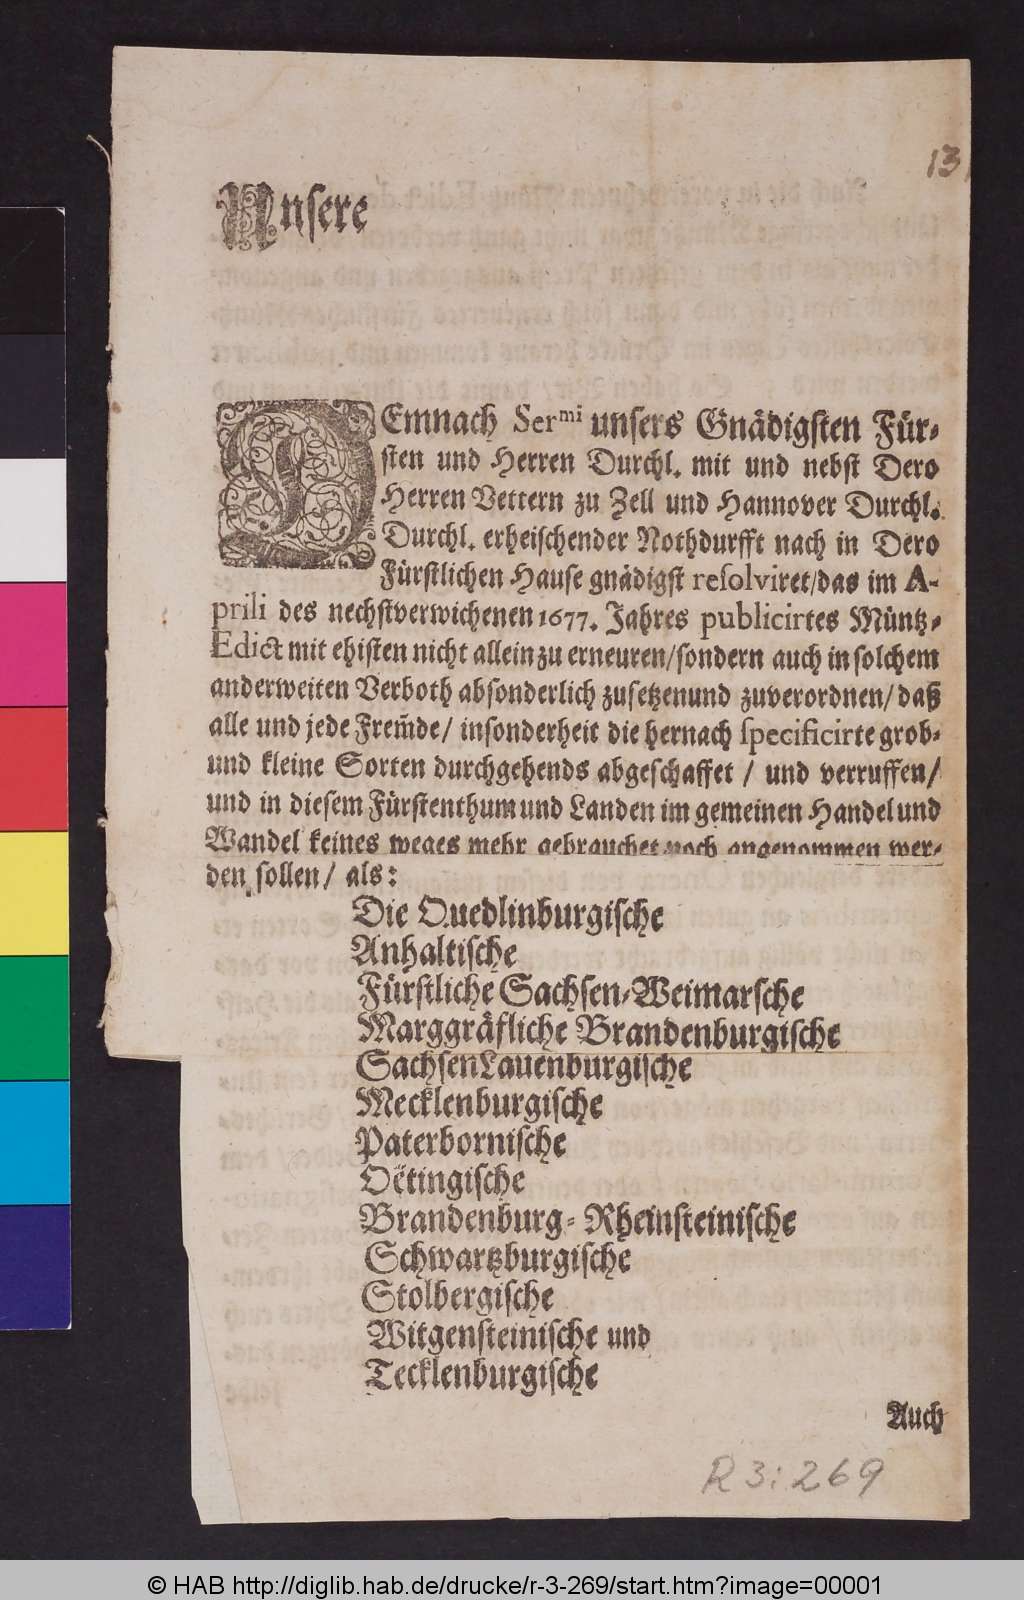 13
Unsere
DEmnach Ser^mi unsers Gnädigsten Für-
sten und Herren Durchl. mit und nebst Dero
Herren Vettern zu Zell und Hannover Durchl.
Durchl. erheischender Nothdurfft nach in Dero
Fürstlichen Hause gnädigst resolviret/das im A-
prili des nechstverwichenen 1677. Jahres publicirtes Müntz-
Edict mit ehisten nicht allein zu erneuren/sondern auch in solchem
anderweiten Verboth absonderlich zusetzenund zuverordnen/daß
alle und jede Frem̄de/ insonderheit die hernach specificirte grob-
und kleine Sorten durchgehends abgeschaffet / und verruffen/
und in diesem Fürstenthum und Landen im gemeinen Handel und
Wandel keines weges mehr gebrauchet noch angenommen wer-
den sollen/ als:
Die Quedlinburgische
Anhaltische
Fürstliche Sachsen-Weimarsche
Marggräfliche Brandenburgische
SachsenLauenburgische
Mecklenburgische
Paterbornische
Oëtingische
Brandenburg-Rheinsteinische
Schwartzburgische
Stolbergische
Witgensteinische und
Tecklenburgische
Auch
R 3:269
© HAB http://diglib.hab.de/drucke/r-3-269/start.htm?image=00001